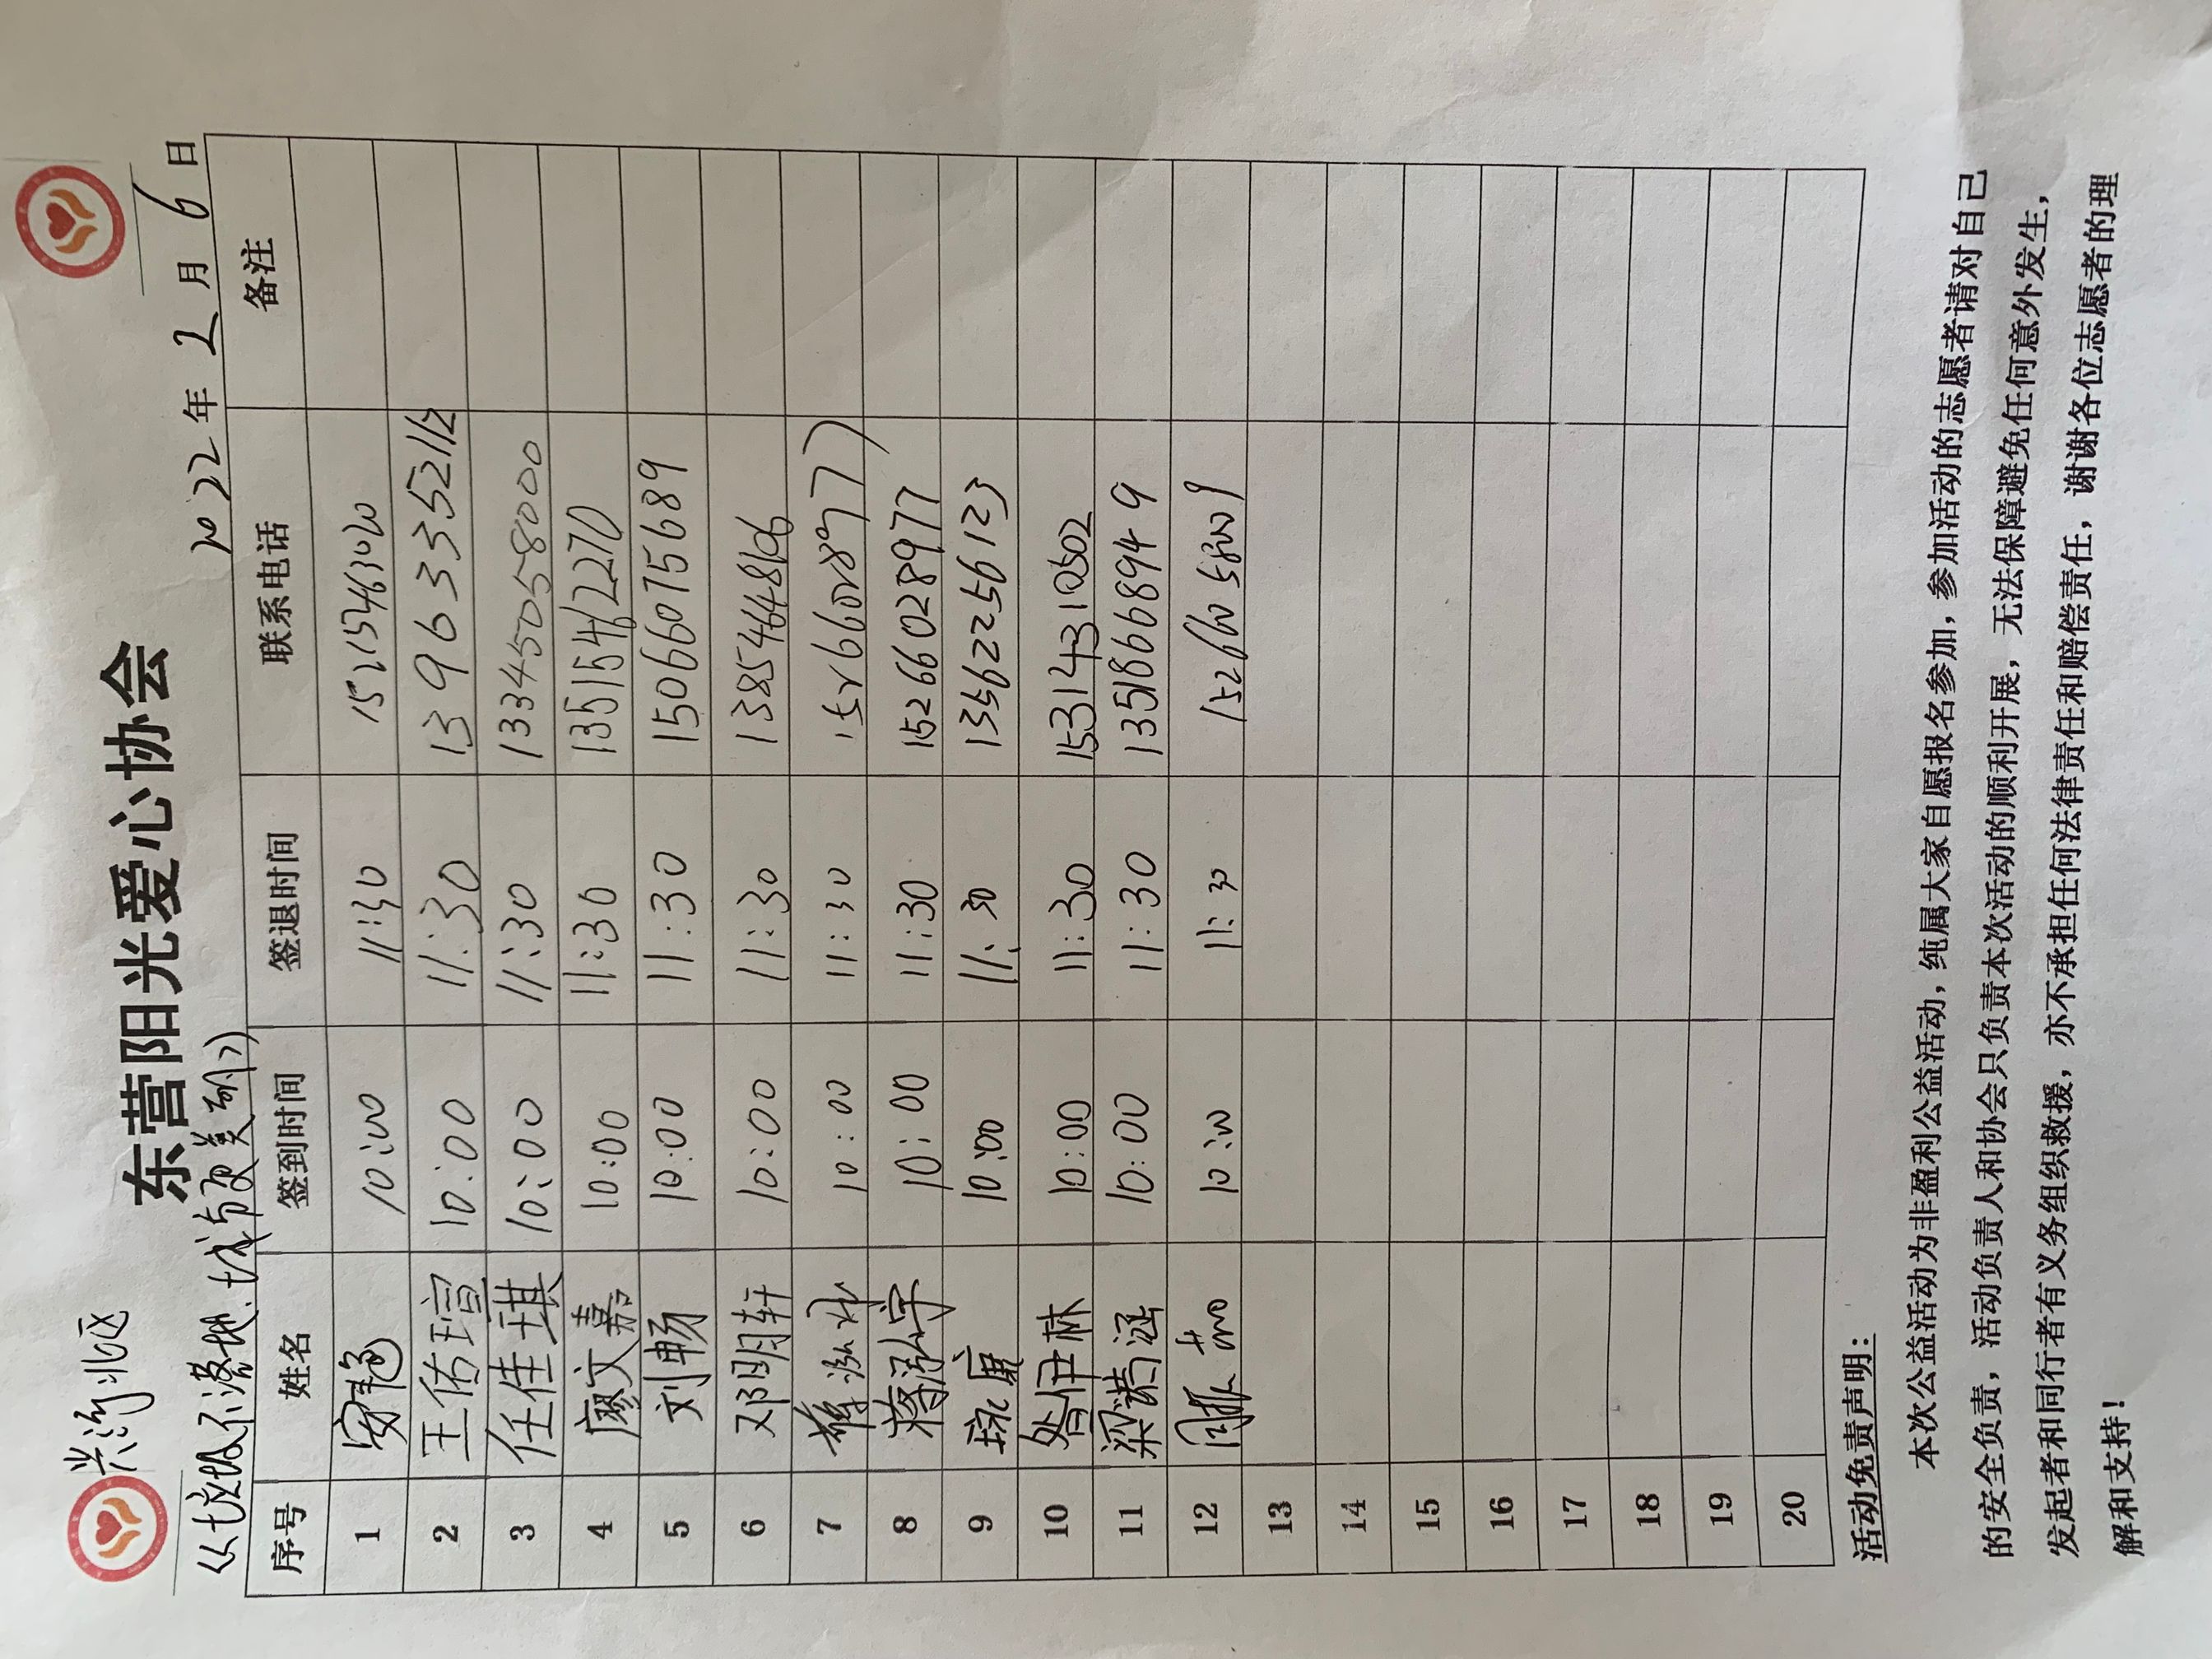 兴河北区
东营阳光爱心协会
《垃圾不落地.城市更美丽》 2022年2月6日
序号 姓名 签到时间 签退时间 联系电话 备注
1 10:00 11:30
2 王佑瑄 10:00 11:30 13963352112
3 任佳琪 10:00 11:30 13345058000
4 廖文嘉 10:00 11:30 13515462270
5 刘畅 10:00 11:30 15066075689
6 邓明轩 10:00 11:30 13854648106
7 10:00 11:30 15266028977
8 蒋泓宇 10:00 11:30 15266028977
9 10:00 11:30 13562256123
10 昝伊林 10:00 11:30 15314310502
11 梁诺涵 10:00 11:30 13518668949
12 10:00 11:30
13
14
15
16
17
18
19
20
活动免责声明：
本次公益活动为非盈利公益活动，纯属大家自愿报名参加，参加活动的志愿者请对自己
的安全负责，活动负责人和协会只负责本次活动的顺利开展，无法保障避免任何意外发生，
发起者和同行者有义务组织救援，亦不承担任何法律责任和赔偿责任，谢谢各位志愿者的理
解和支持！